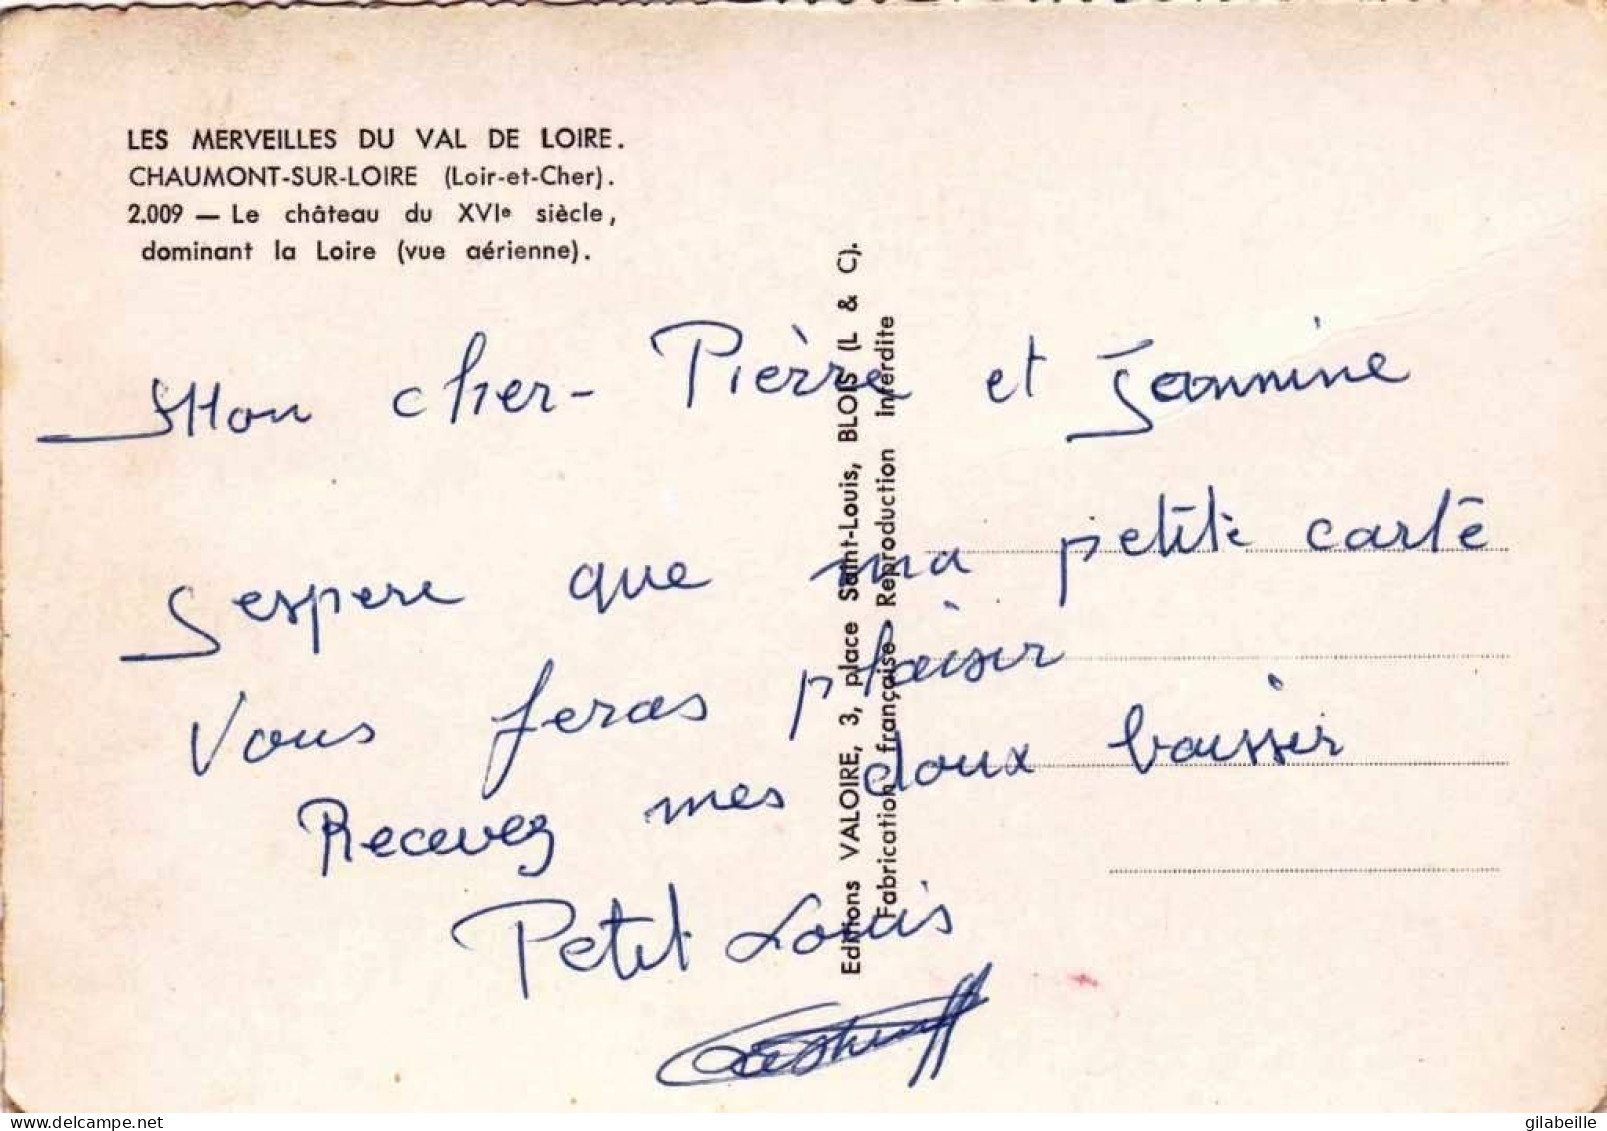 LES MERVEILLES DU VAL DE LOIRE.
CHAUMONT-SUR-LOIRE (Loir-et-Cher).
2.009 — Le château du XVIe siècle,
dominant la Loire (vue aérienne).
Mon cher- Pièrre et Jeannine
Jespere que ma petite carte
Vous feras plaisir
Recevez mes doux baissir
Petit Louis
Editions VALOIRE, 3, place Saint-Louis, BLOIS (L & C).
Fabrication française - Reproduction Interdite
www.delcampe.net
gilabeille